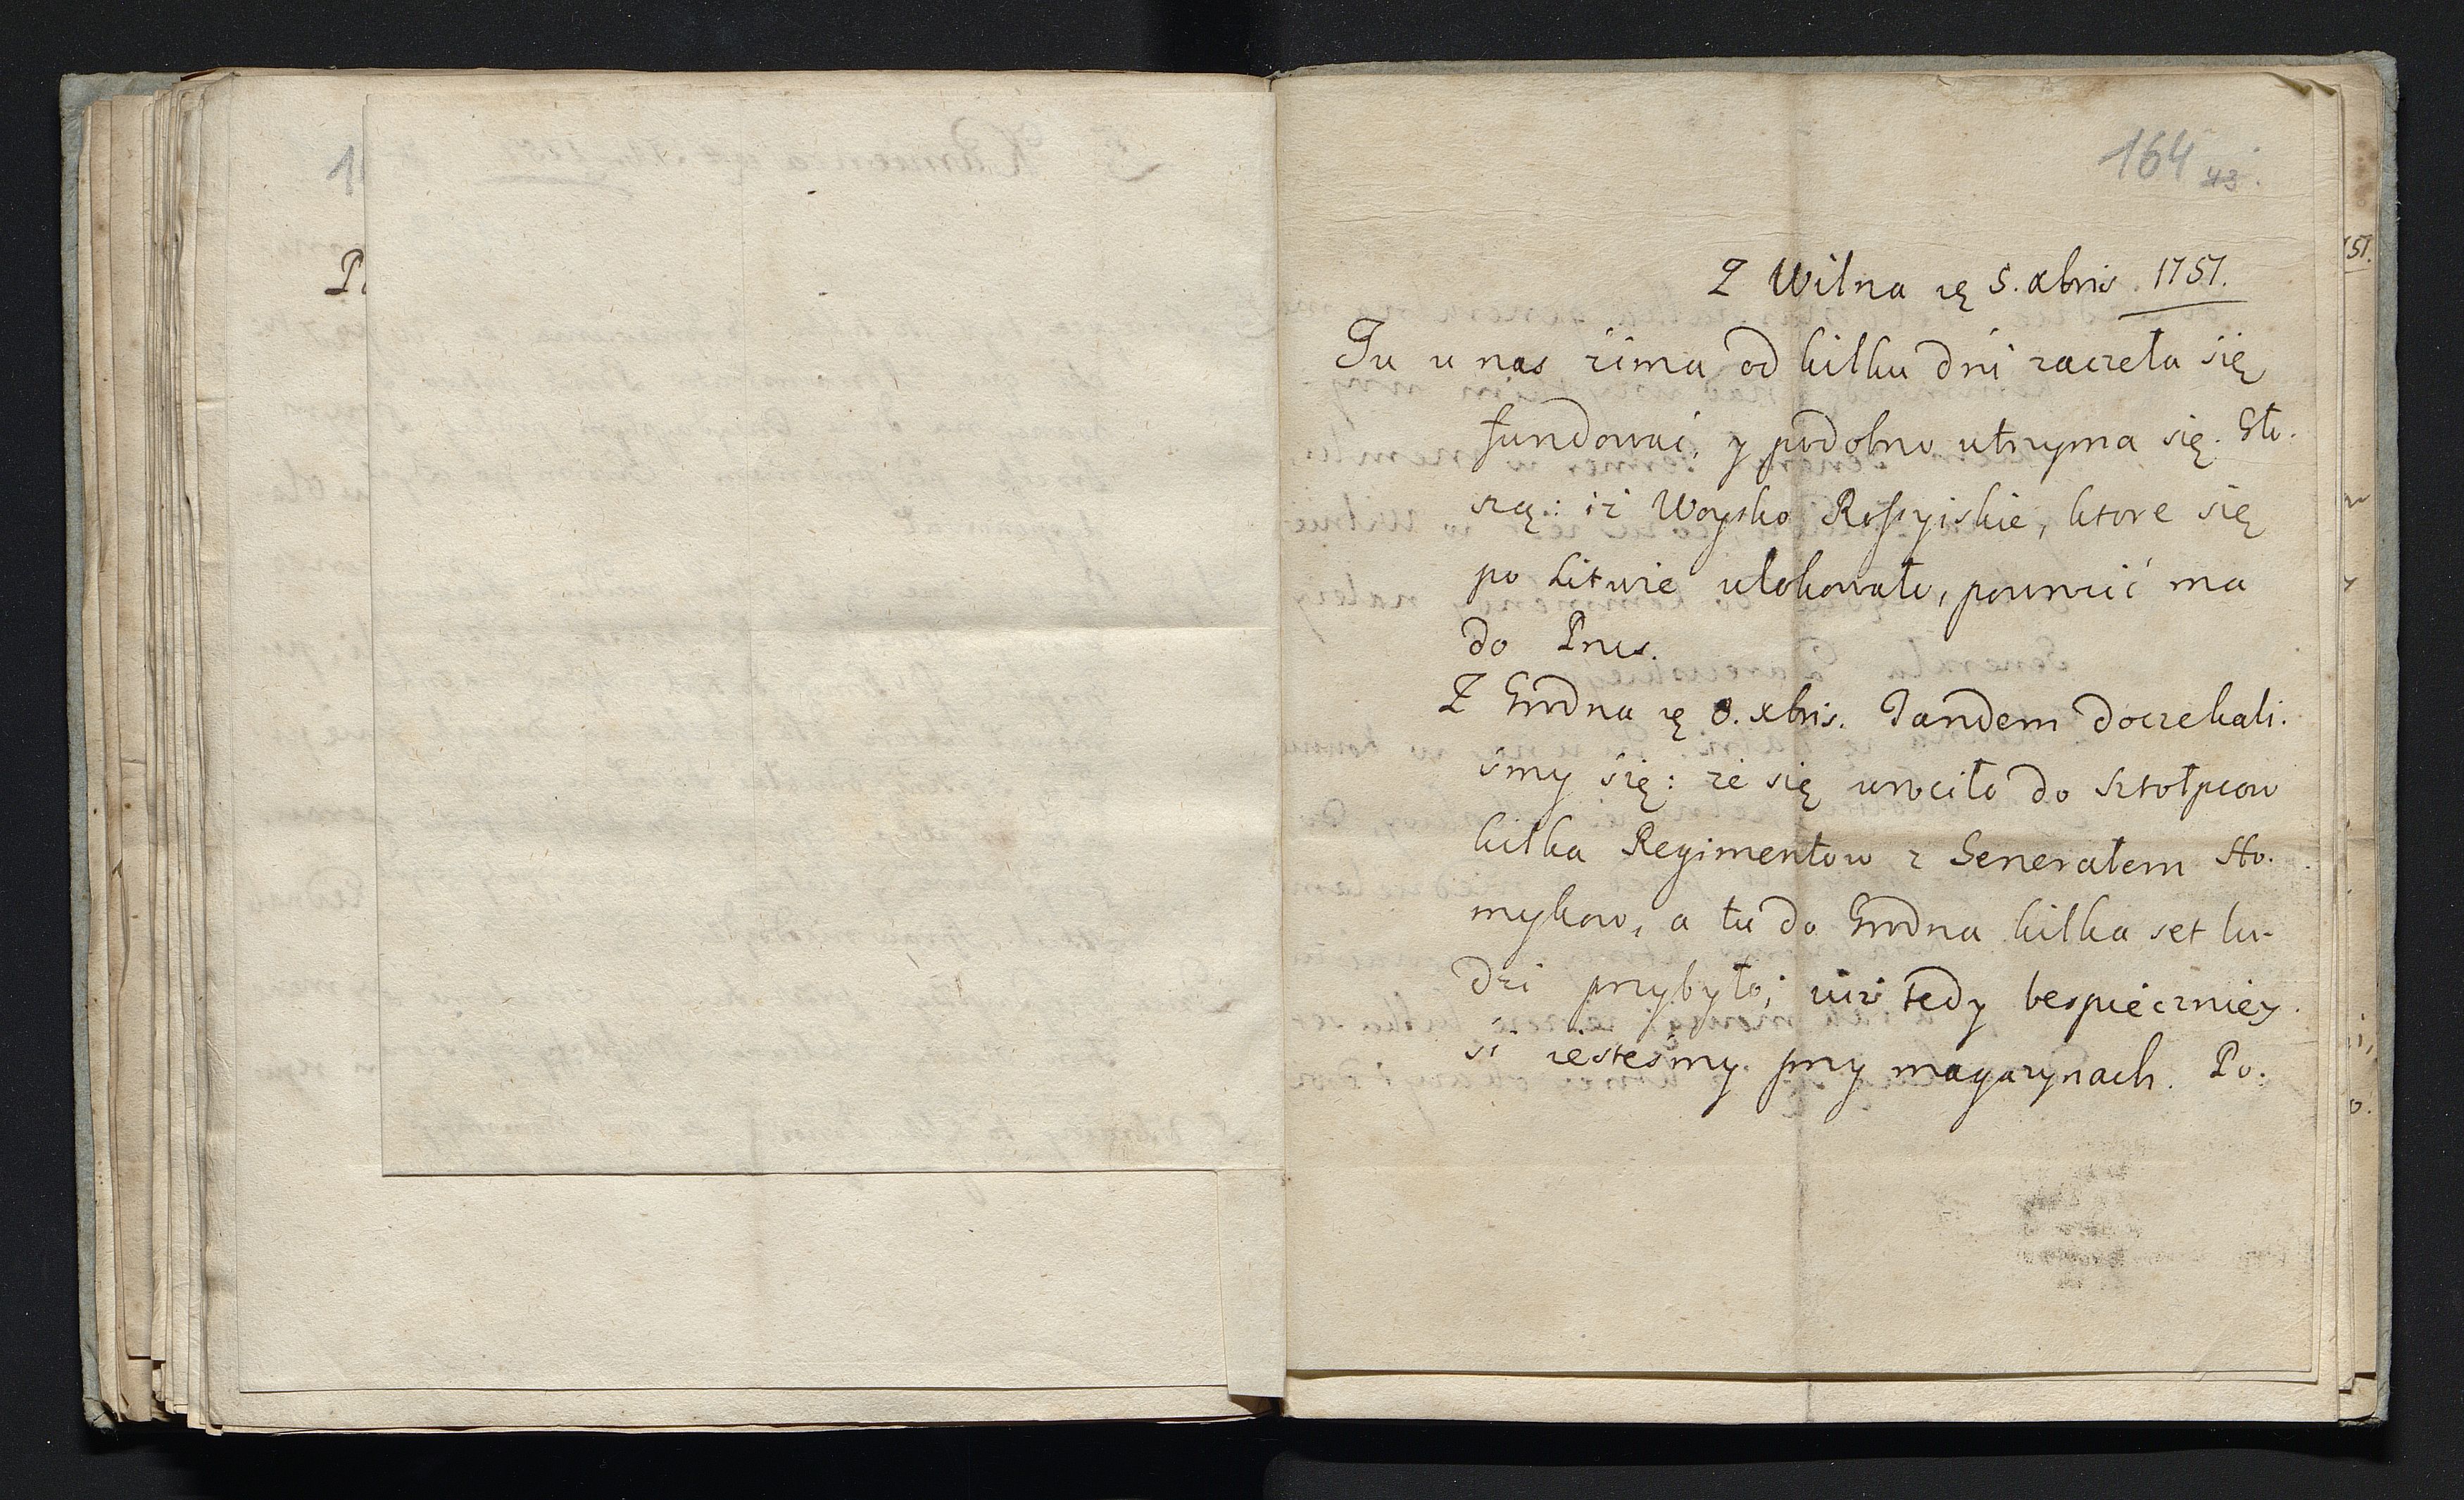 164 43.
Z Wilna ię 5. xbris 1757.
Tu u nas zima od kilku dni zaczeła się
fundować, y podobno utrzyma się. Sły.
szą: iż Woysko Rossyiskie, ktore się
po Litwie ulokowało, powrucić ma
do Prus.
Z Grodna ię 8. xbris. Tandem doczekali.
smy się: że się wrociło do Sztołpcow
kilka Regimentow z Generałem
a tu do Grodna kilka set lu-
dzi przybyło; iuż tedy bespiecznieÿ.
si iestesmy przy magazynach. Po.
P
1
51.